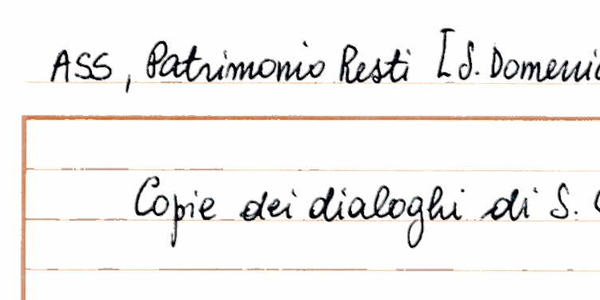 ASS, Patrimonio Resti [S. Domenic
Copie dei dialoghi di S.